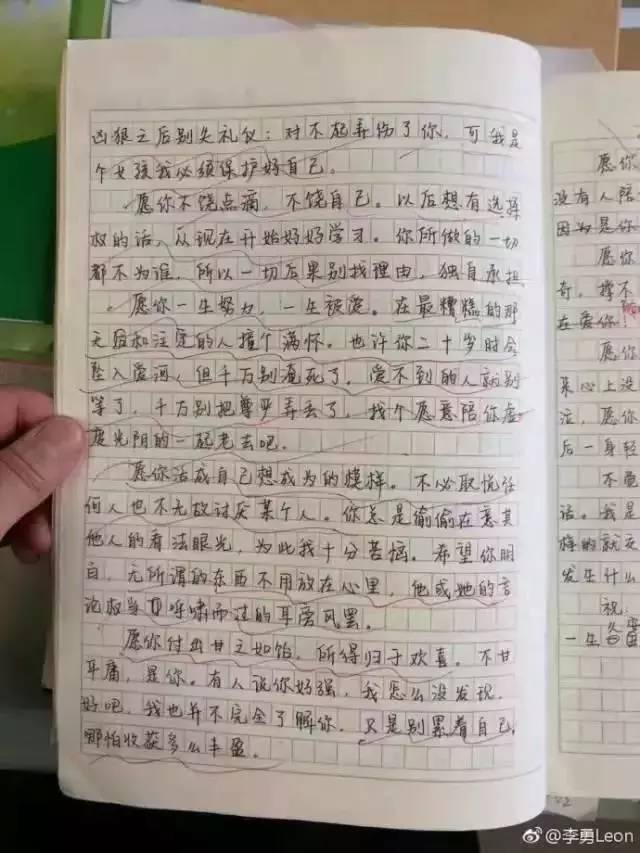 凶狠之后别失礼仪：对不起弄伤了你，可我是
个女孩我必须保护好自己。
愿你不饶点，不饶自己。以后想有选择
权的话，从现在开始好好学习。你所做的一切
都不为谁，所以一切后果别找理由，独自承担
愿你一生努力，一生被爱。在最糟糕的那
和注定的人撞个满怀。也许你二十岁时会
坠入爱河，但千万别淹死了，爱不到的人就别
等了，千万别把尊严弄丢了，找个愿意陪你虚
度光阴的一起老去吧。
愿你活成自己想成为的模样。不必取悦任
何人也不无故讨厌某个人。你总是偷偷在意其
他人的看法眼光，为此我十分苦恼。希望你明
白，无所谓的东西不用放在心里，他或她的言
论权当呼啸而过的耳旁风罢。
愿你付出甘之如饴，所得归于欢喜。不甘
平庸，是你。有人说你好强，我怎么没发现，
好吧，我也并不完全了解你，只是别累着自己，
哪怕收获多么丰盈。
愿你
没有人陪
因为是你
愿你
奇，撑不
在爱你！
愿你
某心上没
泣，愿你
后一身轻
不
话。我是
的就
发生什么
祝：
一生
@李勇Leon